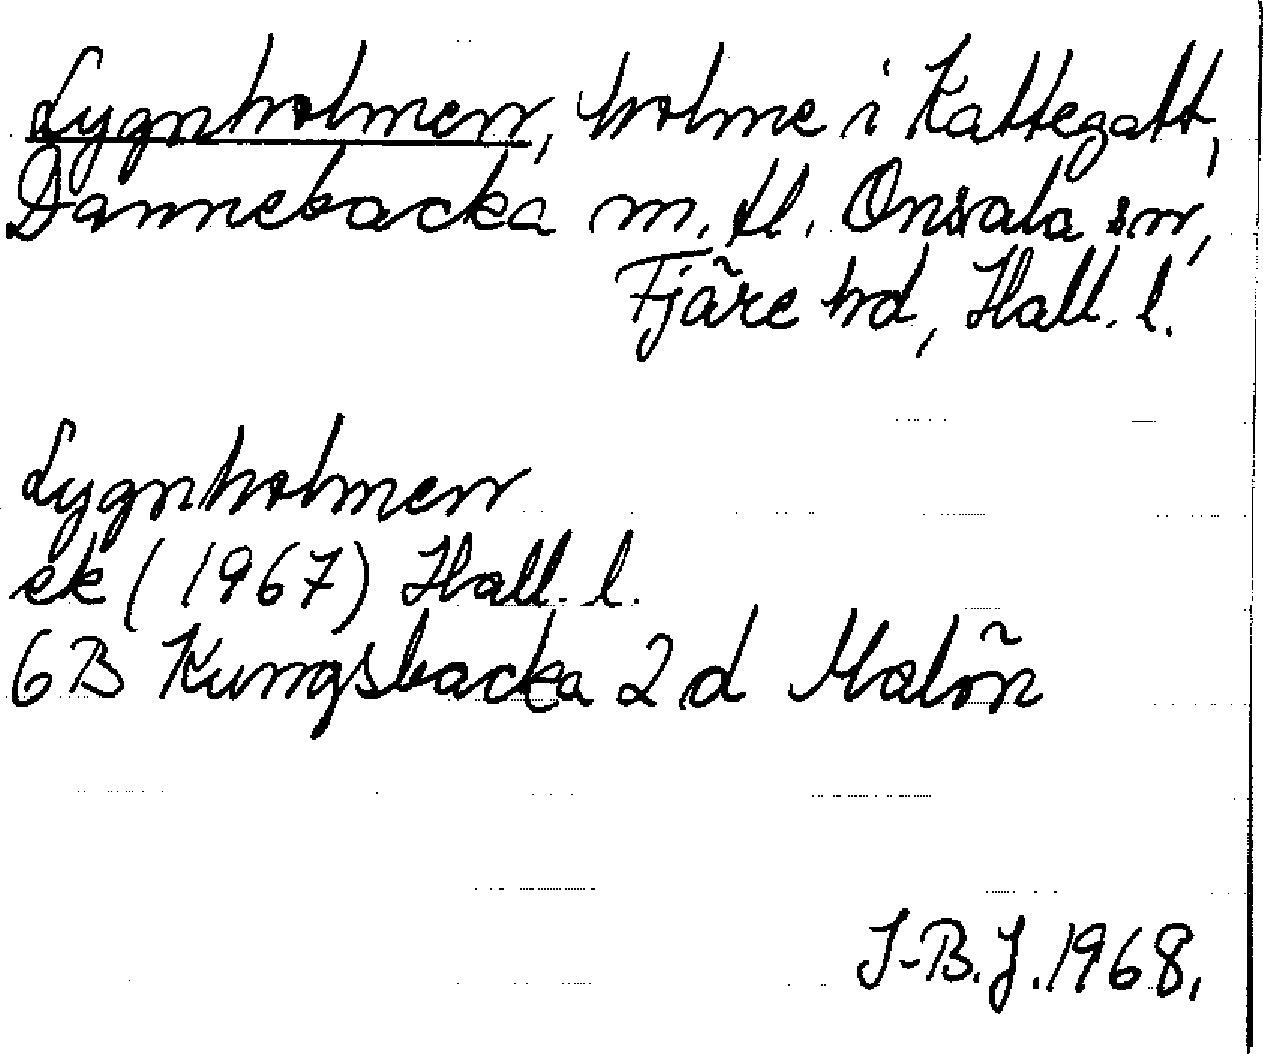 Lygnholmen, holme i Kattegatt,
Dannebacka m. fl. Onsala sn,
Fjäre hd, Hall. l.
Lygnholmen
ek (1967) Hall. l.
6B Kungsbacka 2 d Malön
I-B.J. 1968.